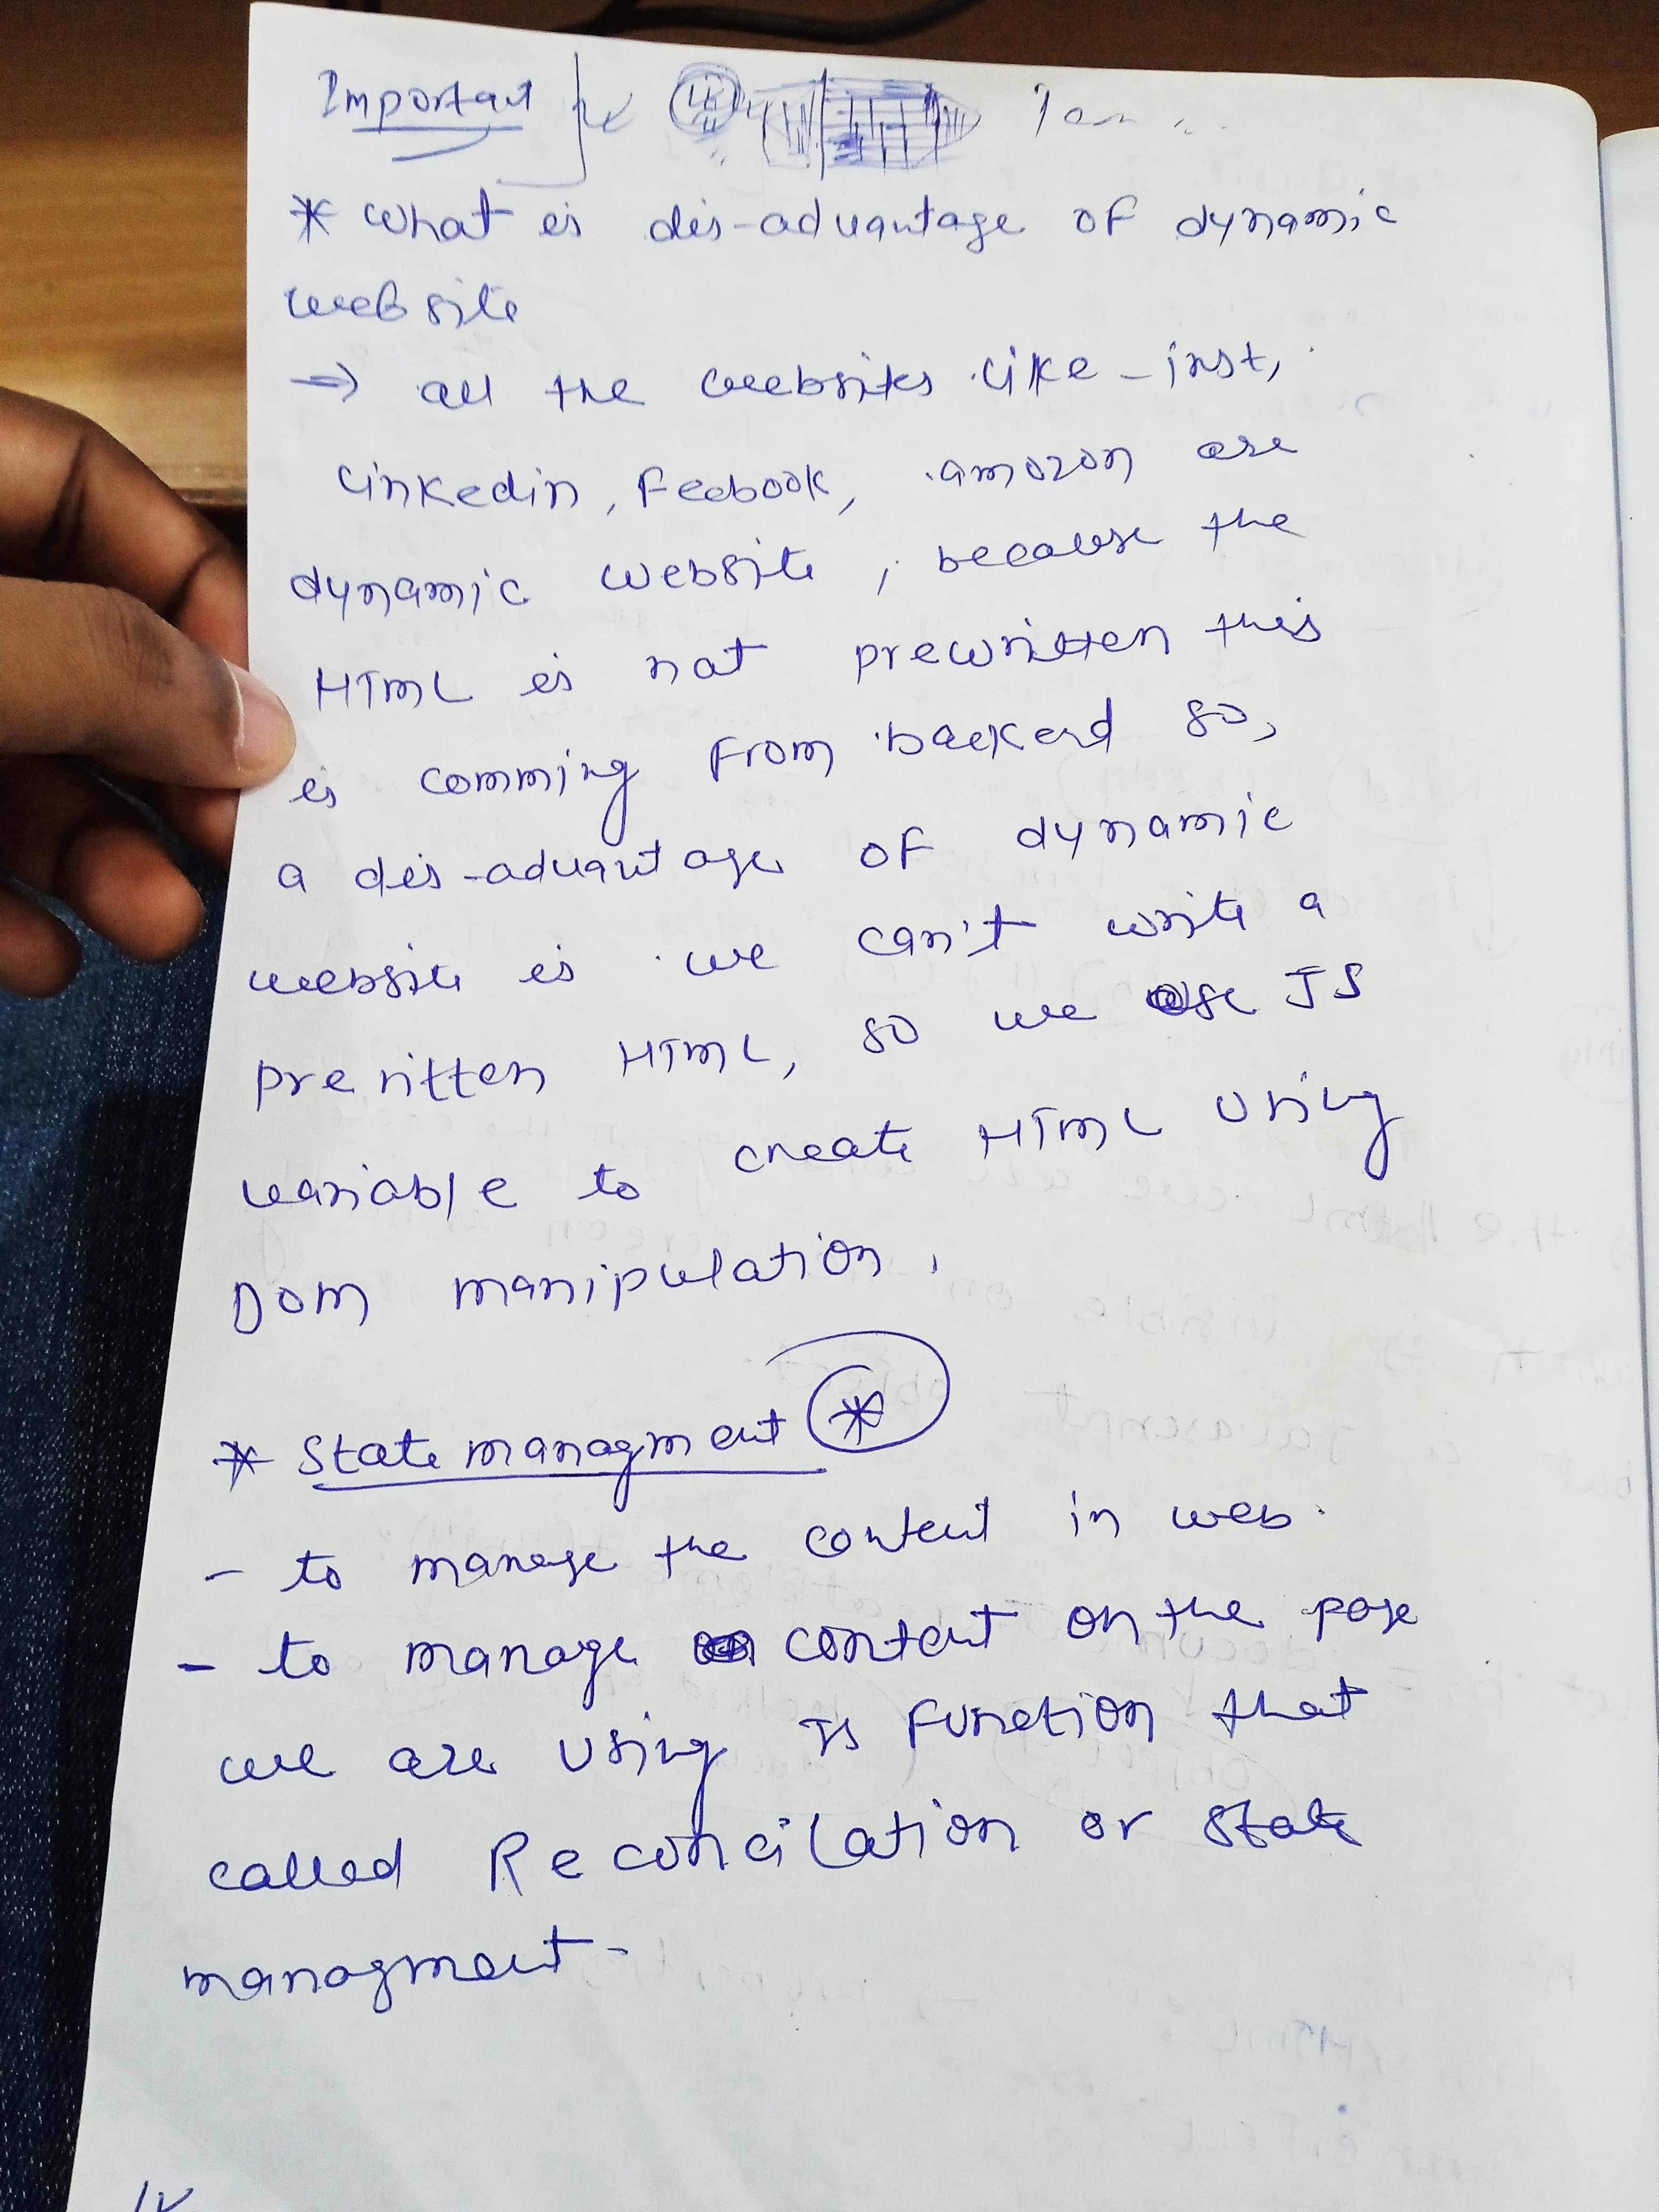 Important
* What is dis-advantage of dynamic
website
→ all the websites like - inst,
Linkedin, Feebook, amozon are
dynamic website, because the
HTML is not prewritten this
is comming from backend so,
a dis-advantage of dynamic
website is we can't write a
preritten HTML, so we use JS
variable to create HTML using
DOM manipulation.
* State managment *
- to manage the content in web.
- to manage content on the page
we are using JS function that
called Reconcilation or state
managment -